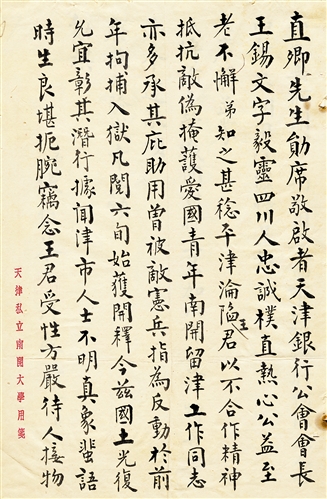 直卿先生勛席敬啟者天津銀行公會會長
王錫文字毅靈四川人忠誠樸直熱心公益至
老不懈弟知之甚稔平津淪陷王君以不合作精神
抵抗敵偽掩護愛國青年南開留津工作同志
亦多承其庇助用曾被敵憲兵指為反動於前
年拘捕入獄凡閱六旬始獲開釋今茲國土光復
允宜彰其潛行據聞津市人士不明真象蜚語
時生良堪扼腕竊念王君受性方嚴待人接物
天津私立南開大學用箋